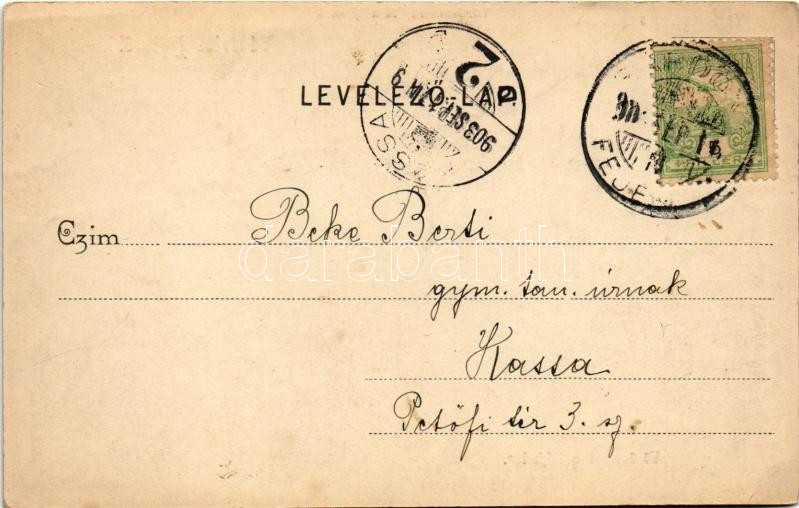 LEVELEZŐ-LAP.
KASSA
903 SEP
FEJÉR
Czim Beke Berti
darabanth
gym. tan. úrnak
Kassa
Petőfi tér 3. sz.